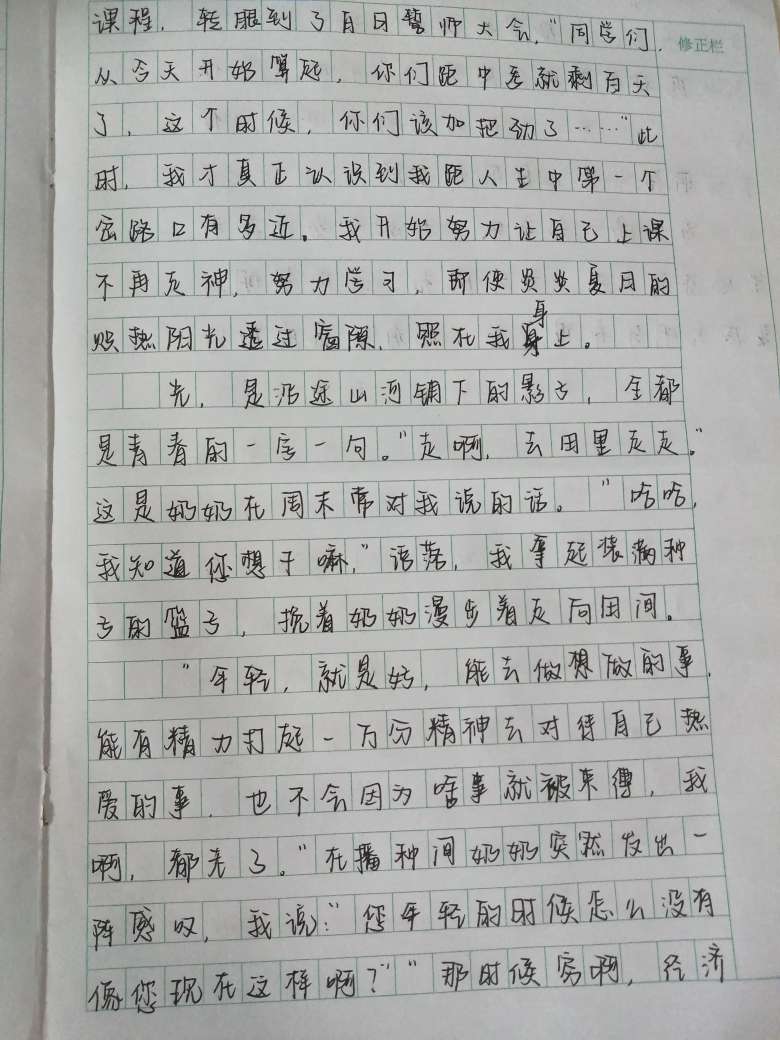 课程，转眼到了百日誓师大会，"同学们，
修正栏
从今天开始算起，你们距中考就剩百天
了，这个时候，你们该加把劲了……"此
时，我才真正认识到我距人生中第一个
岔路口有多近。我开始努力让自己上课
不再走神，努力学习，即使炎炎夏日的
炽热阳光透过窗隙，照在我身上。
光，是沿途山河铺下的影子，全都
是青春的一字一句。"走啊，去田里走走。"
这是奶奶在周末常对我说的话。"哈哈，
我知道你想干嘛，"语落，我拿起装满种
子的篮子，挽着奶奶漫步着走向田间。
"年轻，就是好，能去做想做的事，
能有精力打起一万分精神去对待自己热
爱的事，也不会因为啥事就被束缚，我
啊，都老了。"在播种间奶奶突然发出一
阵感叹，我说："您年轻的时候怎么没有
像您现在这样啊？""那时候穷啊，经济